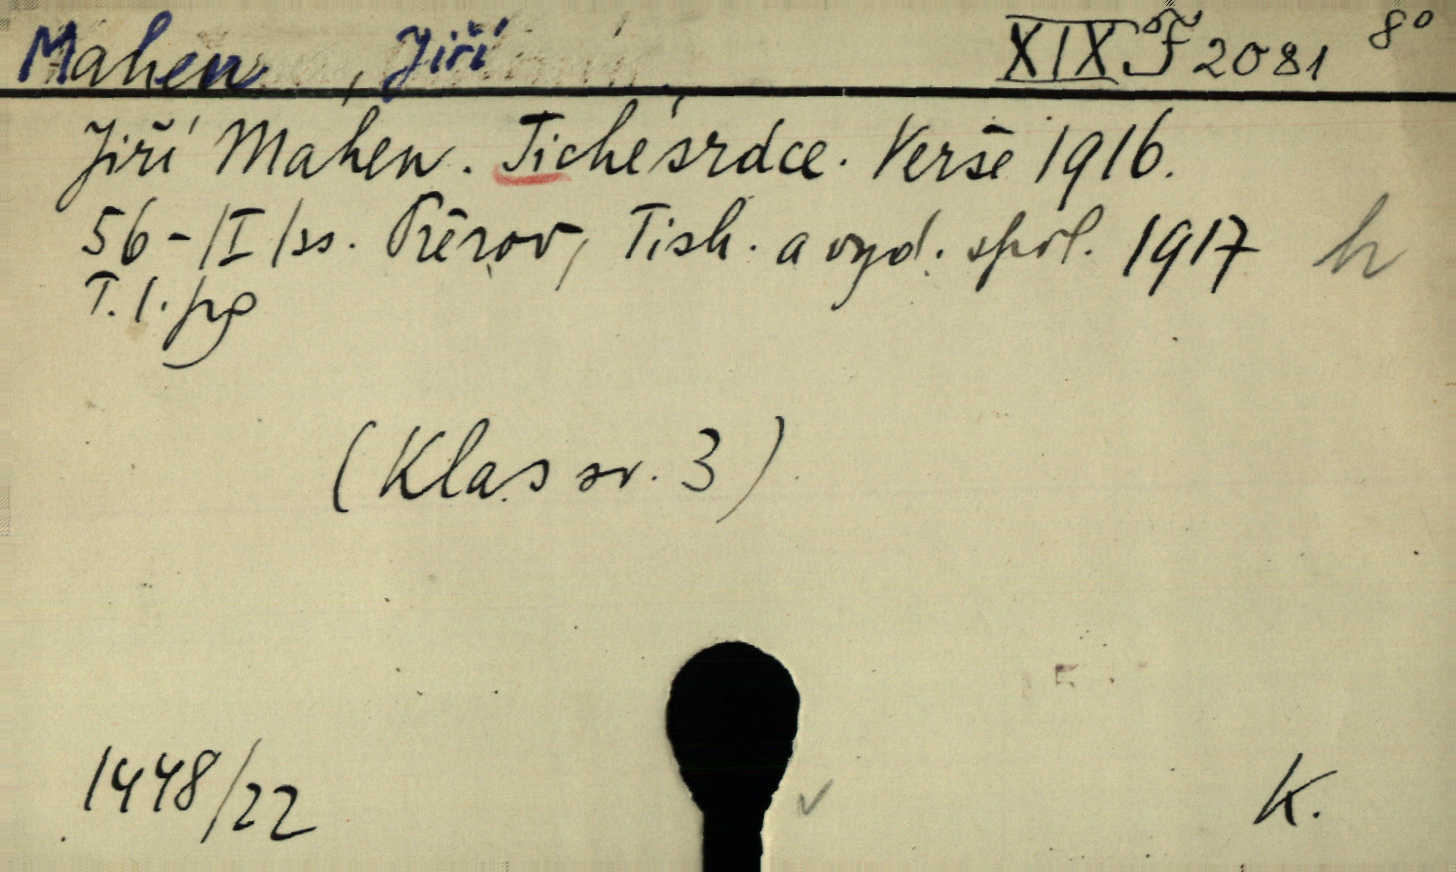 Mahen, Jiří XIX F 2081 8°
Jiří Mahen. Tiché srdce. Verše 1916.
56-/I/ss. Přerov, Tisk. a vyd. spol. 1917 h
T. l. pg
(Klas sv. 3)
1448/22 K.